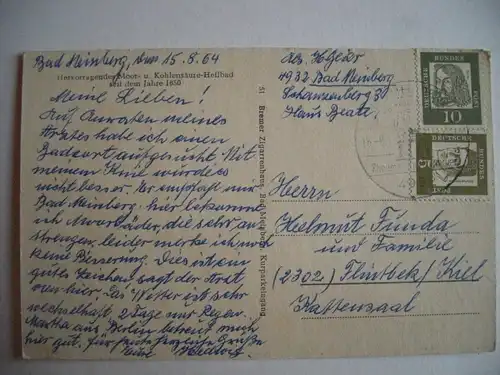 Bad Meinberg, den 15.8.64
Hervorragendes Moor- u. Kohlensäure-Heilbad
seit dem Jahre 1650
Meine Lieben!
Auf Anraten meines
Arztes habe ich einen
Badeort aufgesucht. Mit
meinem Knie wurde es
nicht besser. Er empfahl mir
Bad Meinberg, hier bekomme
ich Moorbäder, die sehr an-
strengen, leider merke ich noch
keine Besserung. Dies ist ein
gutes Zeichen, sagt der Arzt
hier. Das Wetter ist sehr
wechselhaft, 2 Tage nur Regen.
Martha aus Berlin betreut mich
hier gut. Für heute herzliche Grüße
Eure
51 Bremer Zigarrenhaus, Bad Meinberg, Kurparkeingang
Abs.
4932 Bad Meinberg
30
Haus Beate.
DEUTSCHE
BUNDESPOST
10
DEUTSCHE
BUNDESPOST
5
Herrn
Helmut Funda
und Familie
(2302) Flintbek/Kiel
Kattensaal